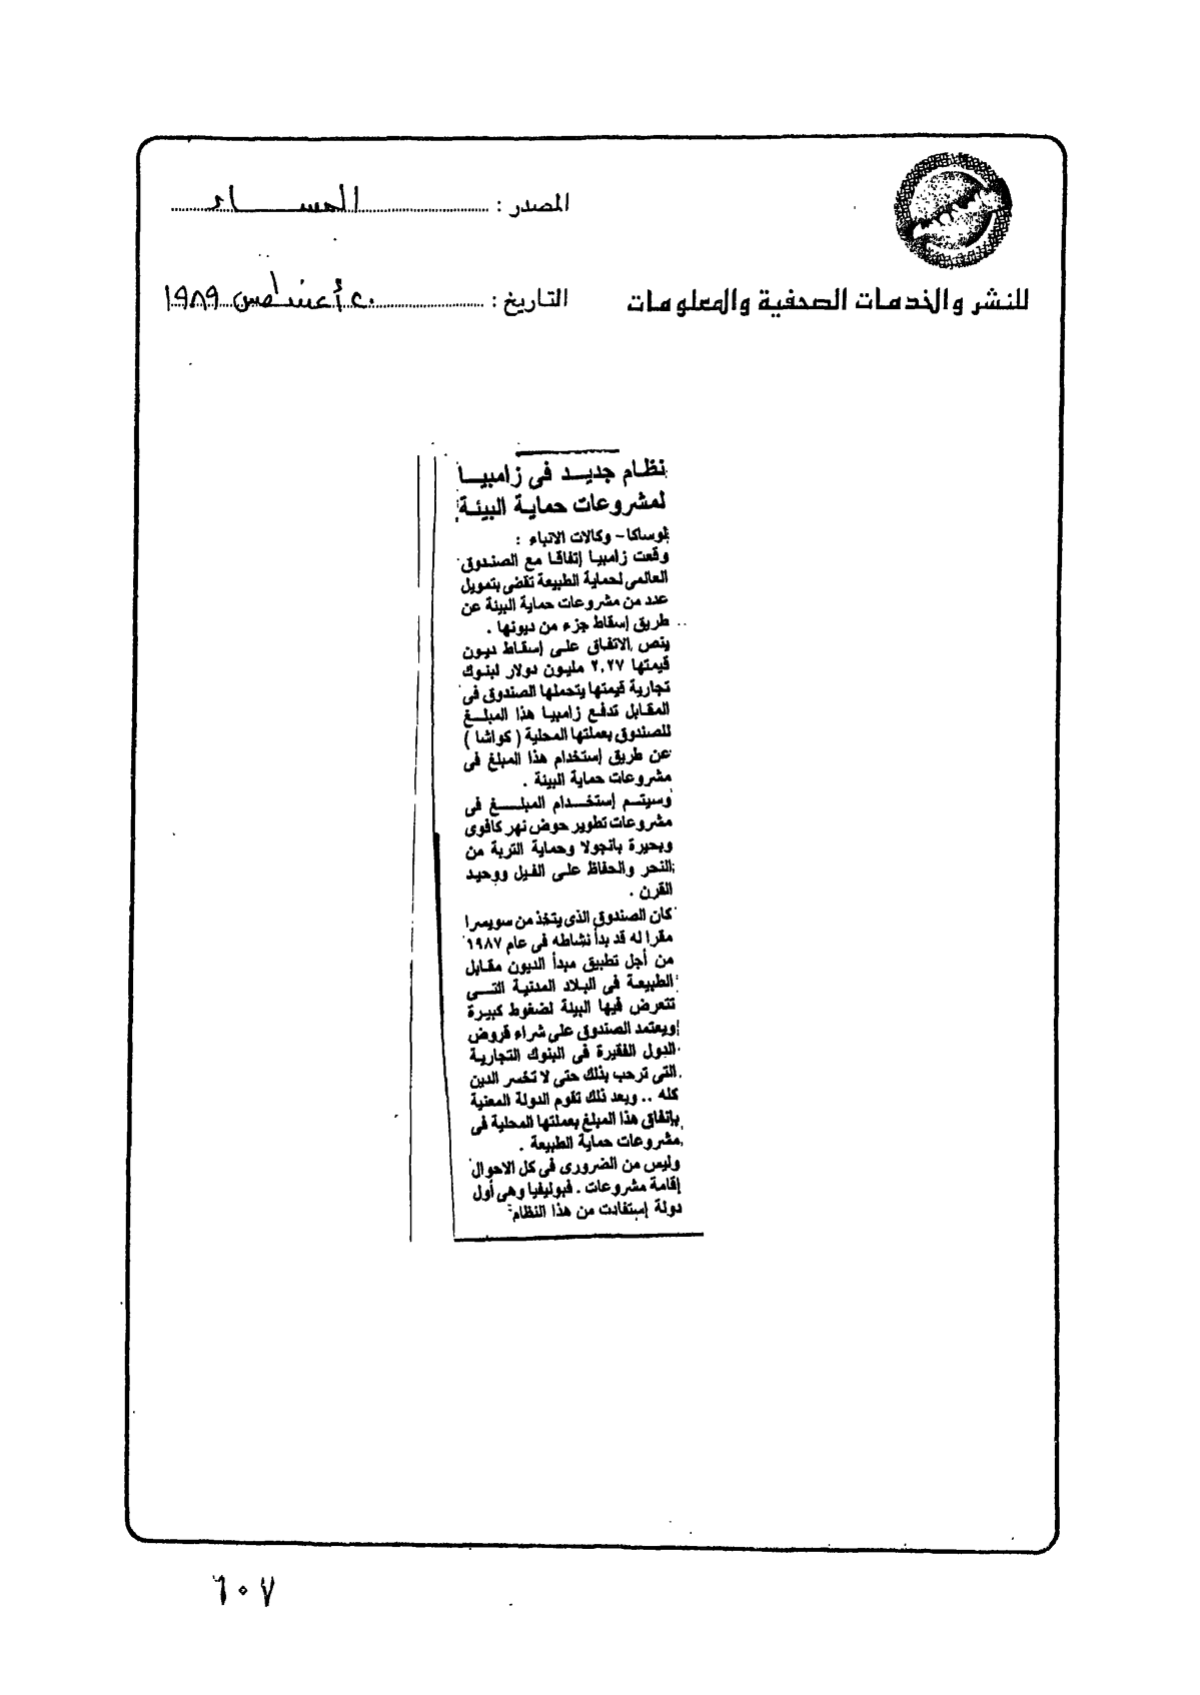 المصدر : المساء
للنشر والخدمات الصحفية والمعلومات
التاريخ : ٢٠ أغسطس ١٩٨٩
نظام جديد فى زامبيا
لمشروعات حماية البيئة
لوساكا - وكالات الانباء :
وقعت زامبيا إتفاقا مع الصندوق
العالمى لحماية الطبيعة تقضى بتمويل
عدد من مشروعات حماية البيئة عن
طريق إسقاط جزء من ديونها .
ينص الاتفاق على إسقاط ديون
قيمتها ٢,٢٧ مليون دولار لبنوك
تجارية قيمتها يتحملها الصندوق فى
المقابل تدفع زامبيا هذا المبلغ
للصندوق بعملتها المحلية ( كواشا )
عن طريق إستخدام هذا المبلغ فى
مشروعات حماية البيئة .
وسيتم إستخدام المبلغ فى
مشروعات تطوير حوض نهر كافوى
وبحيرة بانجولا وحماية التربة من
النحر والحفاظ على الفيل ووحيد
القرن .
كان الصندوق الذى يتخذ من سويسرا
مقرا له قد بدأ نشاطه فى عام ١٩٨٧
من أجل تطبيق مبدأ الديون مقابل
الطبيعة فى البلاد المدنية التى
تتعرض فيها البيئة لضغوط كبيرة
ويعتمد الصندوق على شراء قروض
الدول الفقيرة فى البنوك التجارية
التى ترحب بذلك حتى لا تخسر الدين
كله .. وبعد ذلك تقوم الدولة المعنية
بإنفاق هذا المبلغ بعملتها المحلية فى
مشروعات حماية الطبيعة .
وليس من الضرورى فى كل الاحوال
إقامة مشروعات . فبوليفيا وهى أول
دولة إستفادت من هذا النظام
٦٠٧